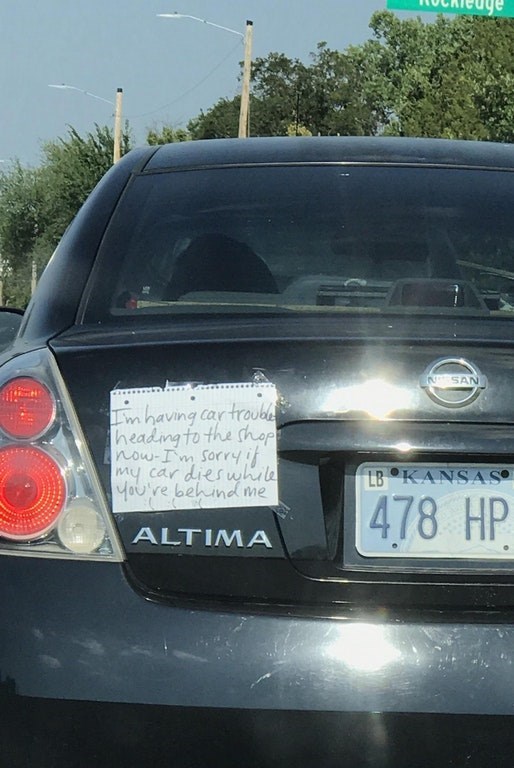 Rockledge
I'm having car trouble
heading to the shop
now-I'm sorry if
my car dies while
you're behind me
NISSAN
LB KANSAS
478 HP
ALTIMA